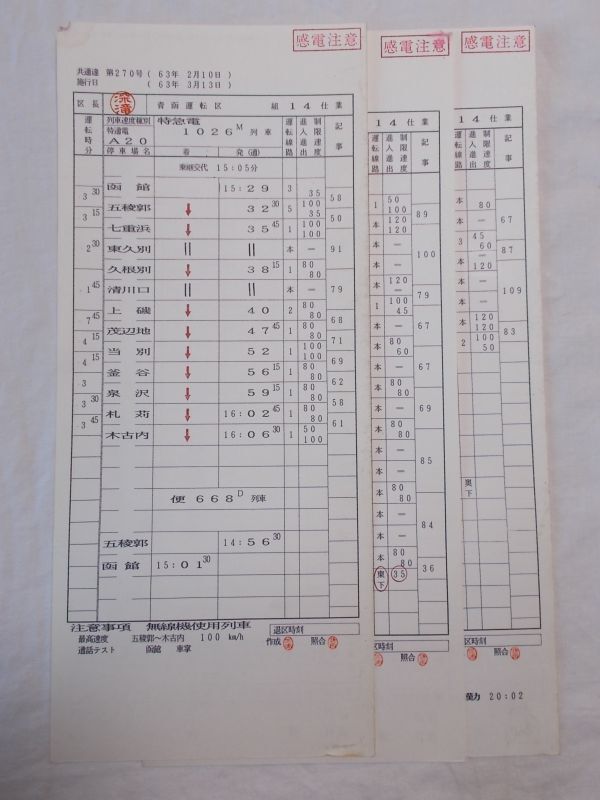 感電注意
共通達 第270号 ( 63年 2月10日 )
施行日 ( 63年 3月13日 )
区長 青函運転区 組 14 仕業
運転時分 列車速度種別 特急電 運転線路 制限速度 進入進出 記事
特通電 1026M 列車
A20
停車場名 着 発(通)
乗継交代 15:05分
函館 15:29 3 35
3 30 58
五稜郭 ↓ 32 30 5 100 35
3 15 50
七重浜 ↓ 35 45 1 100 100
東久別 || || 本 —
2 30 91
久根別 ↓ 38 15 1 80 80
清川口 || || 本 —
1 45 79
上磯 ↓ 40 2 80 80
7 45 68
茂辺地 ↓ 47 45 1 80 80
4 15 71
当別 ↓ 52 1 100 100
4 15 69
釜谷 ↓ 56 15 1 80 80
3 62
泉沢 ↓ 59 15 1 80 80
3 30 58
札苅 ↓ 16:02 45 1 80 80
3 45 61
木古内 ↓ 16:06 30 1 50 100
便 668D 列車
五稜郭 14:56 30
函館 15:01 30
注意事項 無線機使用列車
最高速度 五稜郭〜木古内 100 km/h
通話テスト 函館 車掌
退区時刻
作成 照合
感電注意
14 仕業
運転線路 制限速度 進入進出 記事
1 50 100
89
本 120 120
本 —
100
本 —
本 120 —
79
1 100 45
本 —
67
本 80 60
本 —
67
本 80 80
69
本 80 80
本 —
85
本 —
本 80 80
本 —
84
本 —
本 80 80
東下 35
36
区時刻
照合
感電注意
14 仕業
運転線路 制限速度 進入進出 記事
本 80
67
3 45 60
87
本 — 120
本 —
109
本 —
本 120 120
83
2 100 50
奥下
区時刻
照合
20:02